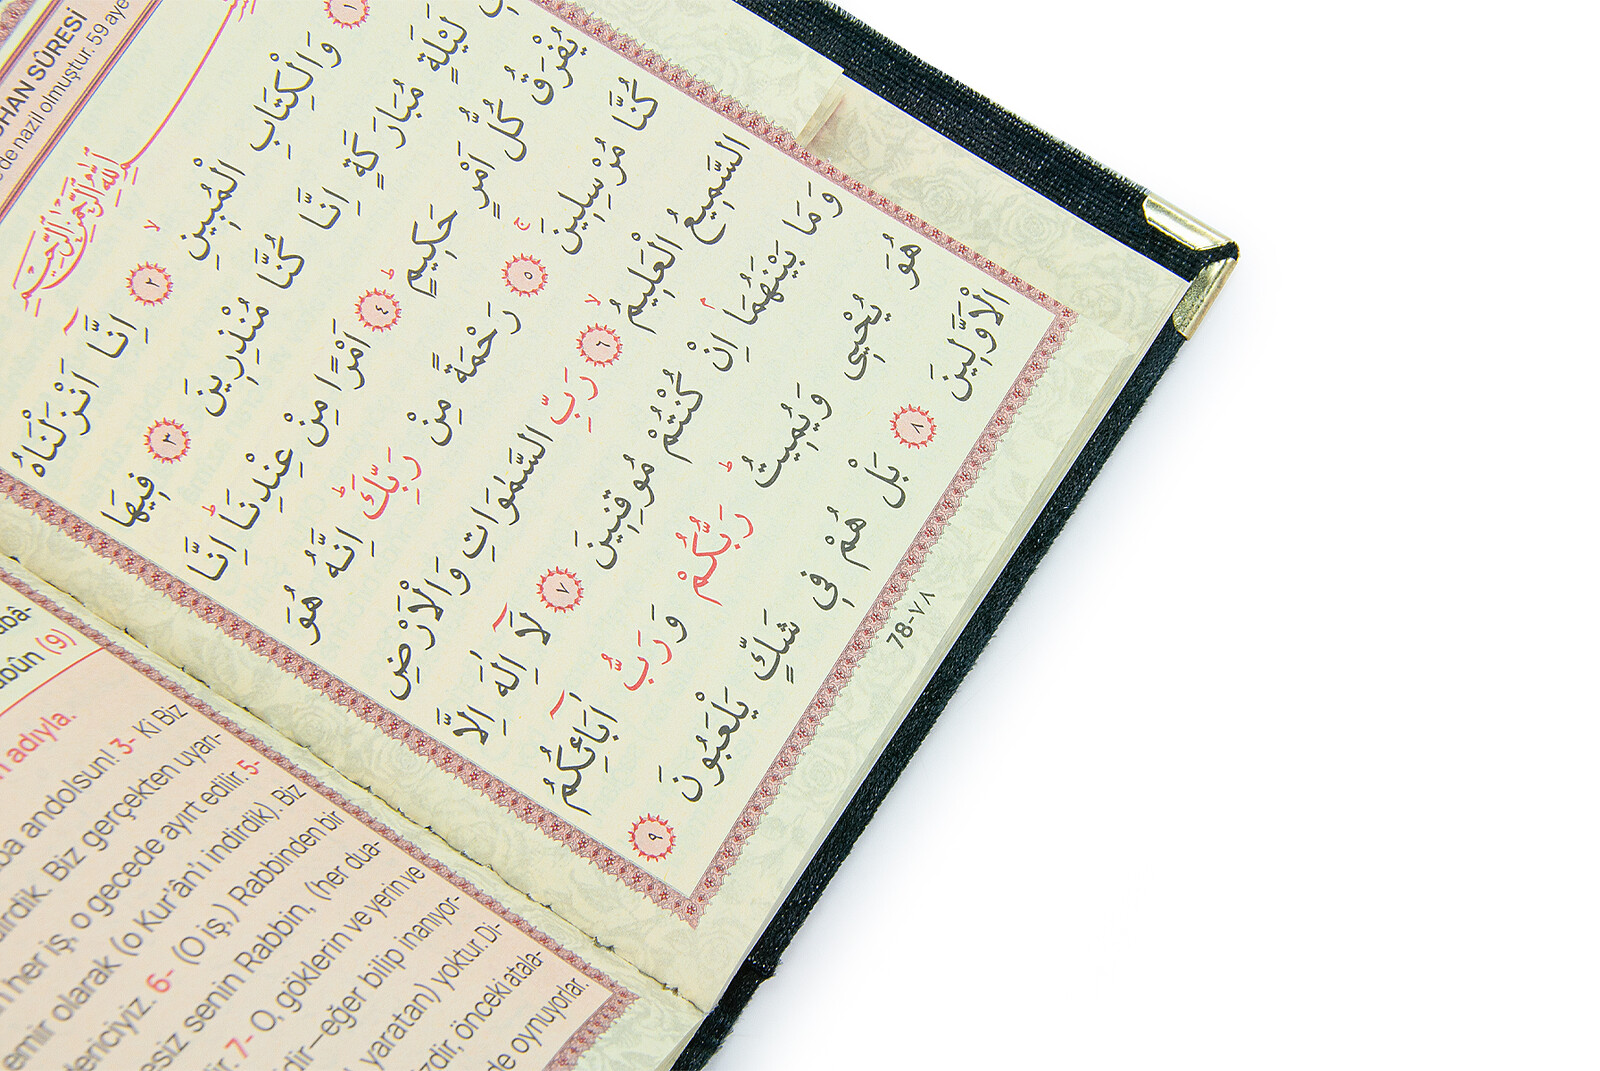 HAN SÛRESİ
de nazil olmuştur. 59 aye
بِسْمِ اللّٰهِ الرَّحْمٰنِ الرَّحِيمِ
١ وَالْكِتَابِ الْمُبِينِۙ ٢ اِنَّٓا اَنْزَلْنَاهُ
لَيْلَةٍ مُبَارَكَةٍ اِنَّا كُنَّا مُنْذِرِينَ ٣ فِيهَا
يُفْرَقُ كُلُّ اَمْرٍ حَكِيمٍۜ ٤ اَمْرًا مِنْ عِنْدِنَاۜ اِنَّا
كُنَّا مُرْسِلِينَۚ ٥ رَحْمَةً مِنْ رَبِّكَۜ اِنَّهُ هُوَ
السَّمِيعُ الْعَلِيمُۙ ٦ رَبِّ السَّمٰوَاتِ وَالْاَرْضِ
وَمَا بَيْنَهُمَاۢ اِنْ كُنْتُمْ مُوقِنِينَ ٧ لَٓا اِلٰهَ اِلَّا
هُوَ يُحْيِى وَيُمِيتُۜ رَبُّكُمْ وَرَبُّ اٰبَٓائِكُمُ
الْاَوَّلِينَ ٨ بَلْ هُمْ فِى شَكٍّ يَلْعَبُونَ ٩
78-٧٨
abâ-
abûn (9)
adıyla.
andolsun! 3- Ki Biz
irdik. Biz gerçekten uyarı-
her iş, o gecede ayırt edilir. 5-
emir olarak (o Kur'ân'ı indirdik). Biz
dericiyiz. 6- (O iş,) Rabbinden bir
esiz senin Rabbin, (her dua-
ir. 7- O, göklerin ve yerin ve
dir–eğer bilip inanıyor-
yaratan) yoktur. Di-
izdir, önceki atala-
de oynuyorlar.